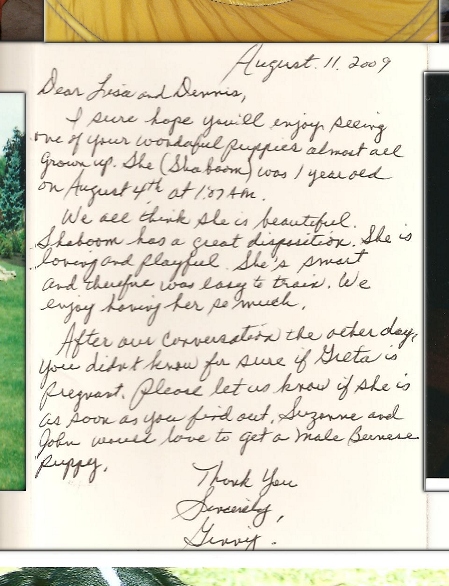 August. 11. 2009
Dear Lisa and Dennis,
I sure hope you'll enjoy seeing
one of your wondaful puppies almost all
grown up. She (Shaboom) was 1 year old
on August 4th at 1:07 AM.
We all think she is beautiful.
Shaboom has a great disposition. She is
loving and playful. She's smart
and therefore was easy to train. We
enjoy having her so much.
After our conversation the other day,
you didn't know for sure if Greta is
pregnant. Please let us know if she is
as soon as you find out. Suzanne and
John would love to get a male Bernese
puppy.
Thank You
Sincerely,
Ginny.